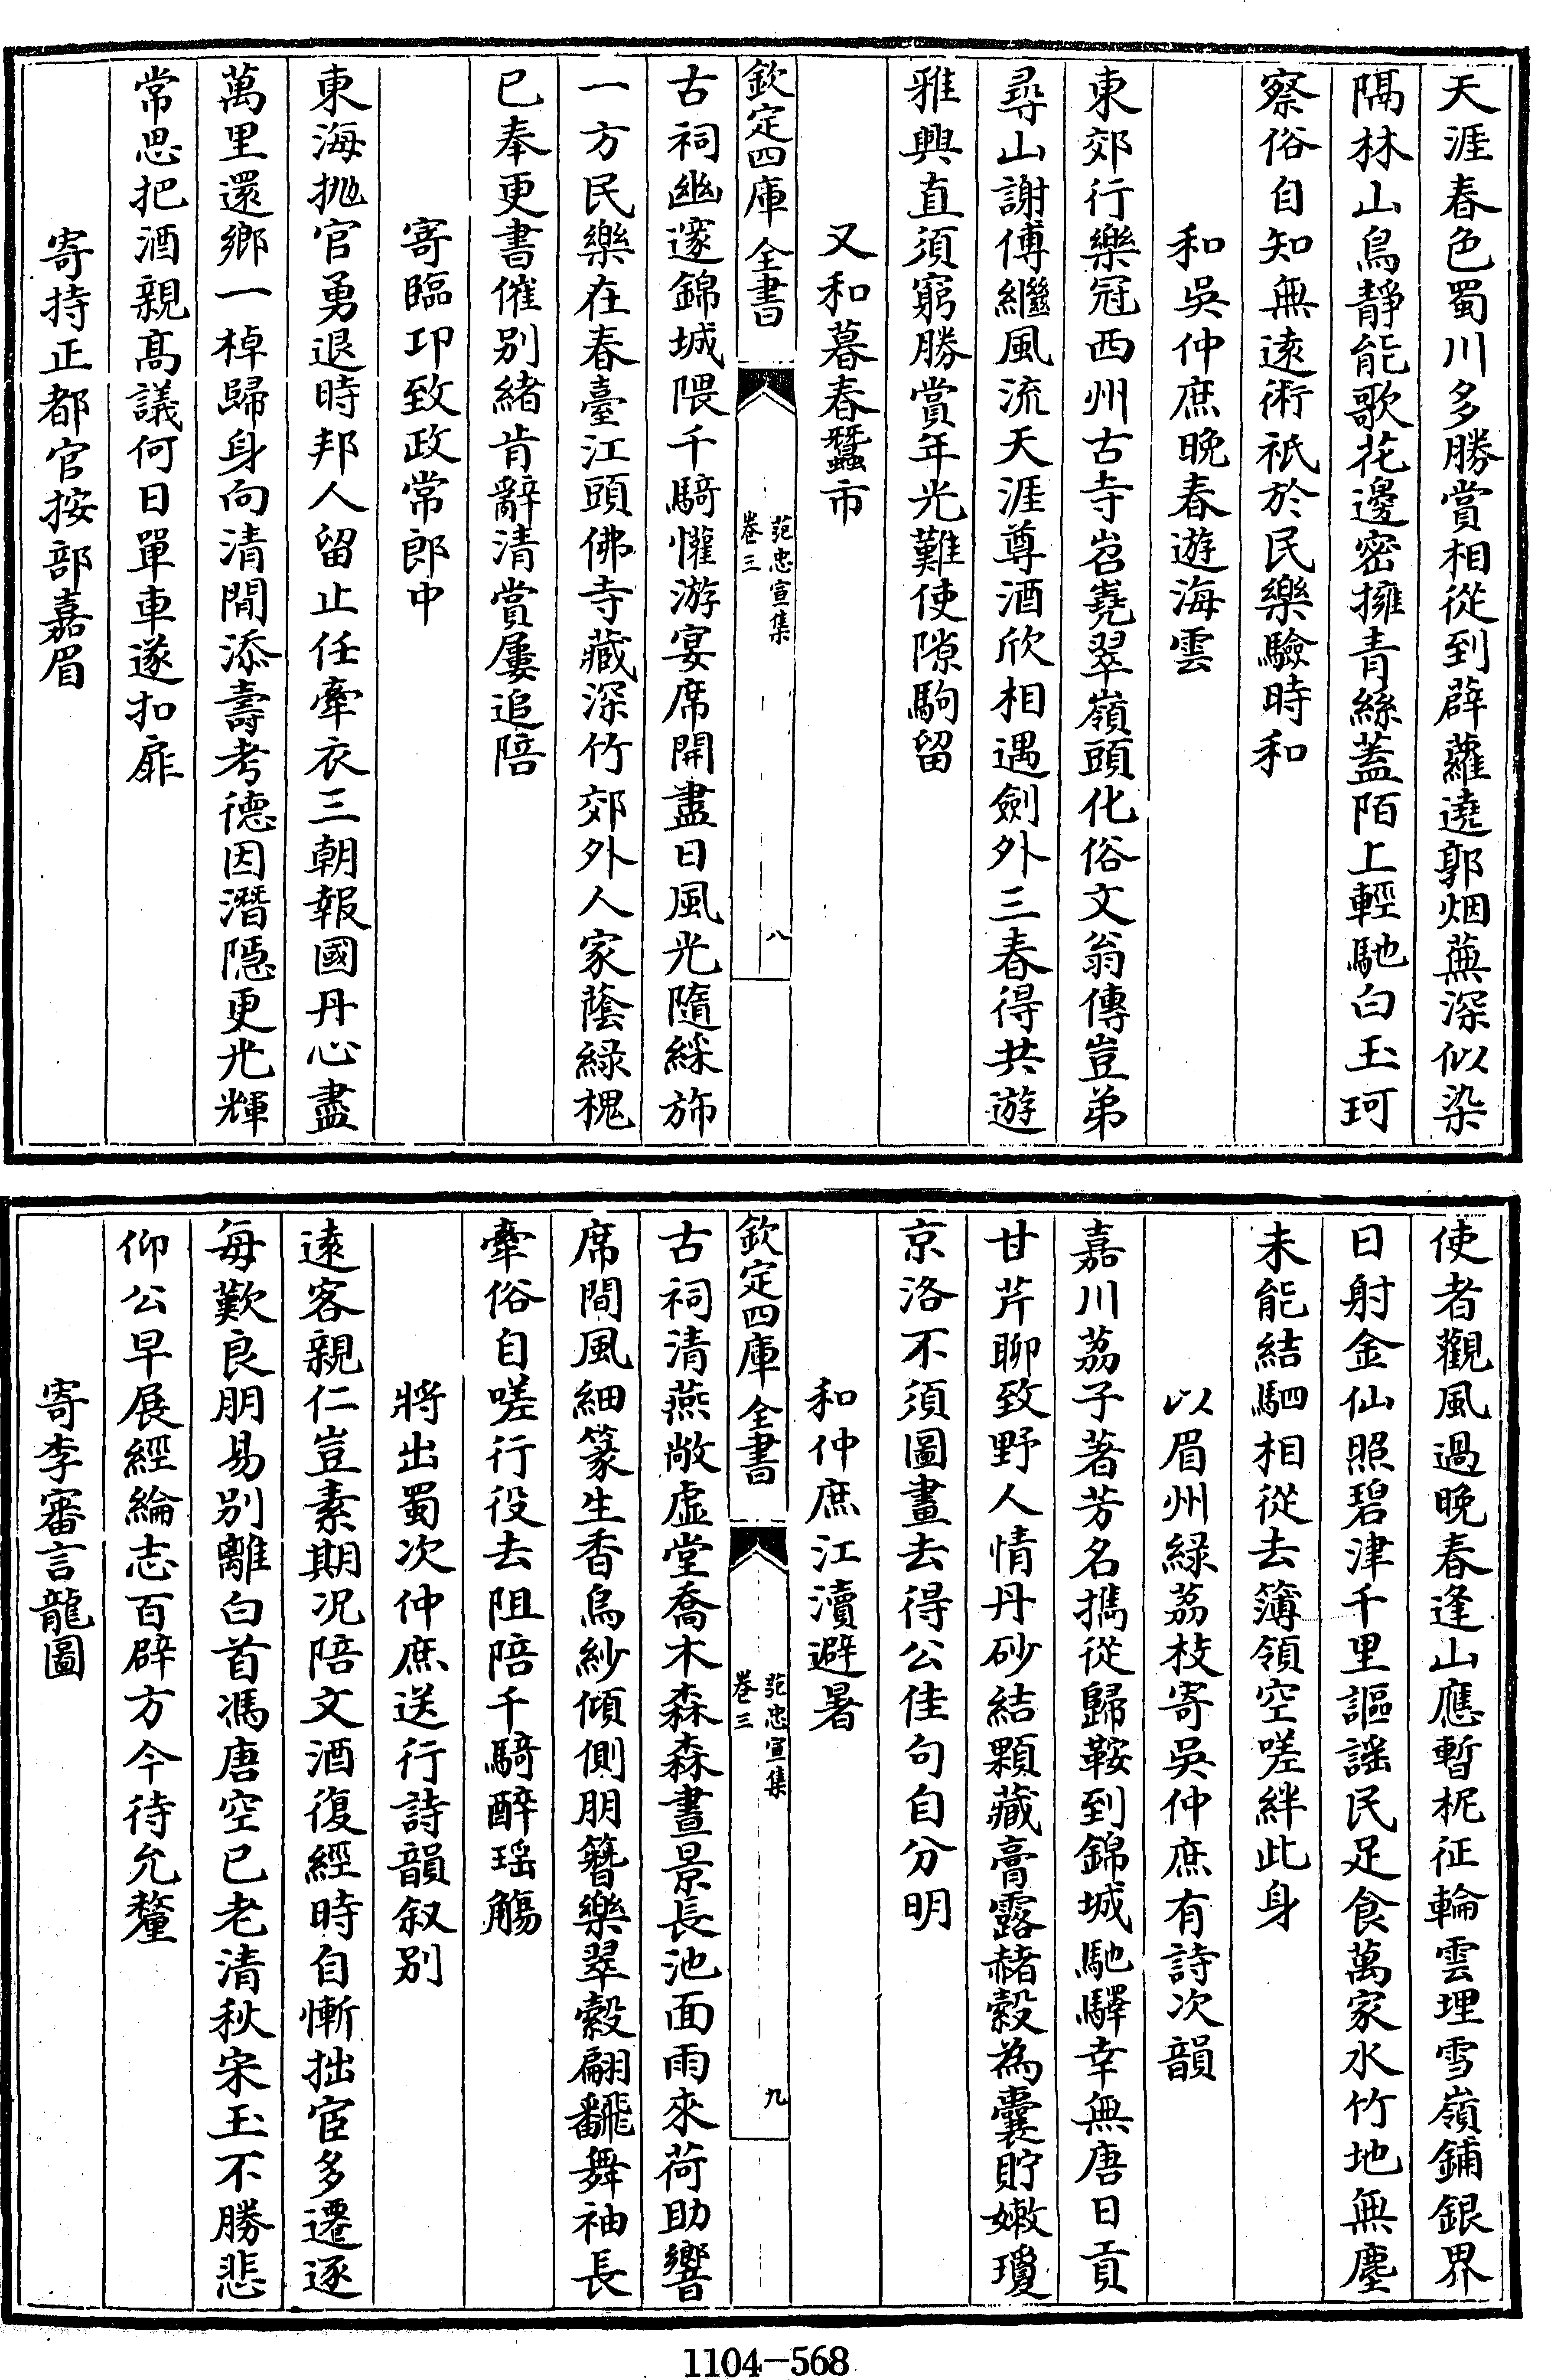 天涯春色蜀川多勝賞相從到薜蘿遶郭烟蕪深似染
隔林山鳥靜能歌花邊密擁青絲蓋陌上輕馳白玉珂
察俗自知無逺術祇於民樂驗時和
和吳仲庶晚春遊海雲
東郊行樂冠西州古寺岧嶤翠嶺頭化俗文翁傳豈弟
尋山謝傅繼風流天涯尊酒欣相遇劍外三春得共遊
雅興直須窮勝賞年光難使隙駒留
又和暮春蠶市
欽定四庫全書
范忠宣集
卷三
八
古祠幽邃錦城隈千騎懽游宴席開盡日風光隨綵斾
一方民樂在春臺江頭佛寺藏深竹郊外人家蔭緑槐
已奉更書催别緒肯辭清賞屢追陪
寄臨邛致政常郎中
東海拋官勇退時邦人留止任牽衣三朝報國丹心盡
萬里還鄉一棹歸身向清閒添壽考德因潛隱更光輝
常思把酒親髙議何日單車遂扣扉
寄持正都官按部嘉眉
使者觀風過晚春逢山應暫柅征輪雲埋雪嶺鋪銀界
日射金仙照碧津千里謳謡民足食萬家水竹地無塵
未能結駟相從去簿領空嗟絆此身
以眉州緑荔枝寄吳仲庶有詩次韻
嘉川荔子著芳名攜從歸鞍到錦城馳驛幸無唐日貢
甘芹聊致野人情丹砂結顆藏膏露赭縠為囊貯嫩瓊
京洛不須圖畫去得公佳句自分明
和仲庶江瀆避暑
欽定四庫全書
范忠宣集
卷三
九
古祠清燕敞虚堂喬木森森晝景長池面雨來荷助響
席間風細篆生香烏紗傾側朋簪樂翠縠翩飜舞袖長
牽俗自嗟行役去阻陪千騎醉瑶觴
將出蜀次仲庶送行詩韻叙别
逺客親仁豈素期况陪文酒復經時自慚拙宦多遷逐
每歎良朋易别離白首馮唐空已老清秋宋玉不勝悲
仰公早展經綸志百辟方今待允釐
寄李審言龍圖
1104-568